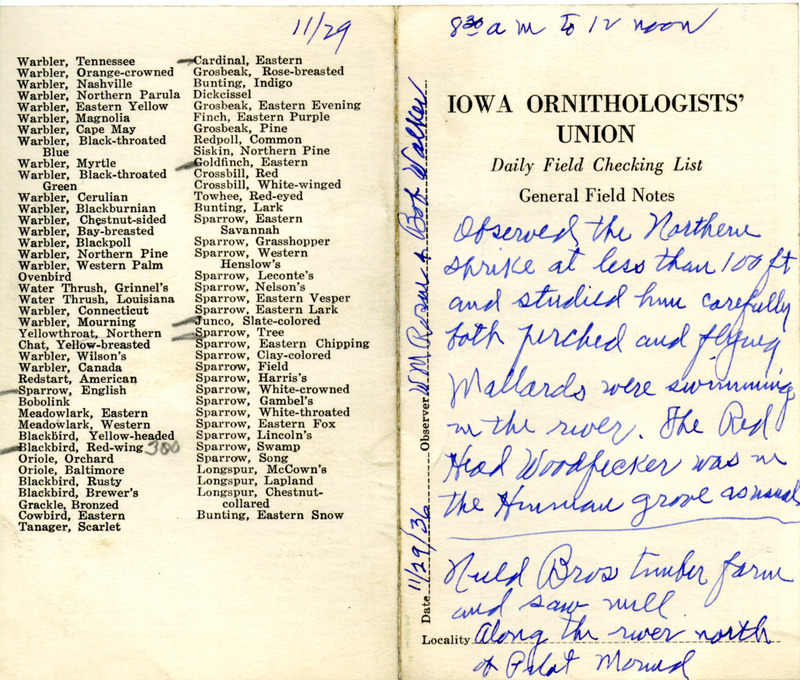 11/29
Warbler, Tennessee
Warbler, Orange-crowned
Warbler, Nashville
Warbler, Northern Parula
Warbler, Eastern Yellow
Warbler, Magnolia
Warbler, Cape May
Warbler, Black-throated
Blue
Warbler, Myrtle
Warbler, Black-throated
Green
Warbler, Cerulian
Warbler, Blackburnian
Warbler, Chestnut-sided
Warbler, Bay-breasted
Warbler, Blackpoll
Warbler, Northern Pine
Warbler, Western Palm
Ovenbird
Water Thrush, Grinnel's
Water Thrush, Louisiana
Warbler, Connecticut
Warbler, Mourning
Yellowthroat, Northern
Chat, Yellow-breasted
Warbler, Wilson's
Warbler, Canada
Redstart, American
Sparrow, English
Bobolink
Meadowlark, Eastern
Meadowlark, Western
Blackbird, Yellow-headed
Blackbird, Red-wing 300
Oriole, Orchard
Oriole, Baltimore
Blackbird, Rusty
Blackbird, Brewer's
Grackle, Bronzed
Cowbird, Eastern
Tanager, Scarlet
Cardinal, Eastern
Grosbeak, Rose-breasted
Bunting, Indigo
Dickcissel
Grosbeak, Eastern Evening
Finch, Eastern Purple
Grosbeak, Pine
Redpoll, Common
Siskin, Northern Pine
Goldfinch, Eastern
Crossbill, Red
Crossbill, White-winged
Towhee, Red-eyed
Bunting, Lark
Sparrow, Eastern
Savannah
Sparrow, Grasshopper
Sparrow, Western
Henslow's
Sparrow, Leconte's
Sparrow, Nelson's
Sparrow, Eastern Vesper
Sparrow, Eastern Lark
Junco, Slate-colored
Sparrow, Tree
Sparrow, Eastern Chipping
Sparrow, Clay-colored
Sparrow, Field
Sparrow, Harris's
Sparrow, White-crowned
Sparrow, Gambel's
Sparrow, White-throated
Sparrow, Eastern Fox
Sparrow, Lincoln's
Sparrow, Swamp
Sparrow, Song
Longspur, McCown's
Longspur, Lapland
Longspur, Chestnut-
collared
Bunting, Eastern Snow
8 30 a m to 12 noon
IOWA ORNITHOLOGISTS'
UNION
Daily Field Checking List
General Field Notes
Observed the Northern
Shrike at less than 100 ft
and studied him carefully
both perched and flying
Mallards were swimming
in the river. The Red
Head Woodpecker was in
the Hinman grove as usual
Bros timber farm
and saw mill
Locality Along the river north
of Pilot Mound
Date 11/29/36 Observer W M Rosene & Bob Walker